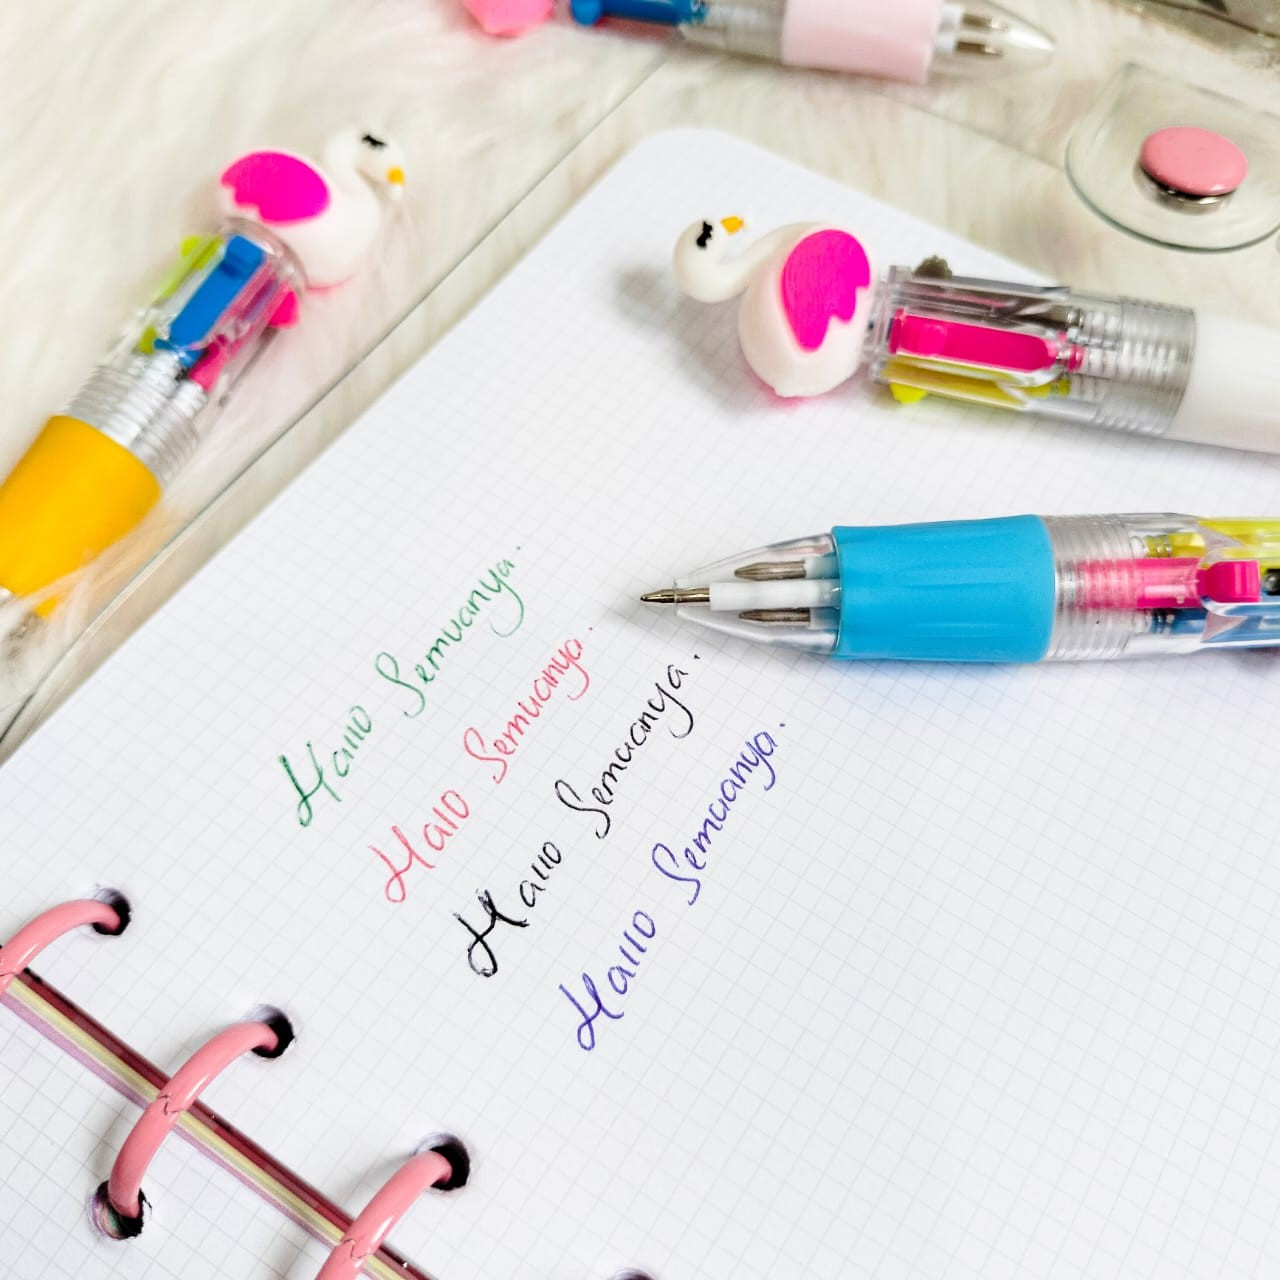 Hallo Semuanya.
Hallo Semuanya.
Hallo Semuanya.
Hallo Semuanya.